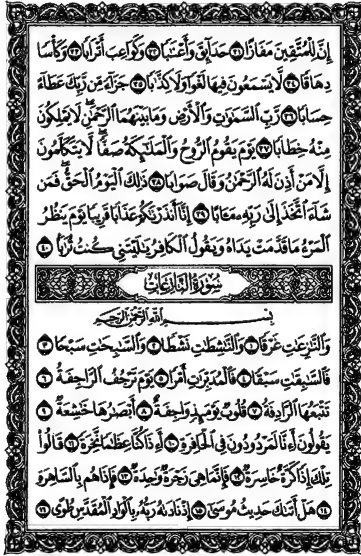 إِنَّ لِلْمُتَّقِينَ مَفَازًا ٣١ حَدَآئِقَ وَأَعْنَٰبًا ٣٢ وَكَوَاعِبَ أَتْرَابًا ٣٣ وَكَأْسًا
دِهَاقًا ٣٤ لَّا يَسْمَعُونَ فِيهَا لَغْوًا وَلَا كِذَّٰبًا ٣٥ جَزَآءً مِّن رَّبِّكَ عَطَآءً
حِسَابًا ٣٦ رَّبِّ ٱلسَّمَٰوَٰتِ وَٱلْأَرْضِ وَمَا بَيْنَهُمَا ٱلرَّحْمَٰنِ لَا يَمْلِكُونَ
مِنْهُ خِطَابًا ٣٧ يَوْمَ يَقُومُ ٱلرُّوحُ وَٱلْمَلَٰٓئِكَةُ صَفًّا لَّا يَتَكَلَّمُونَ
إِلَّا مَنْ أَذِنَ لَهُ ٱلرَّحْمَٰنُ وَقَالَ صَوَابًا ٣٨ ذَٰلِكَ ٱلْيَوْمُ ٱلْحَقُّ فَمَن
شَآءَ ٱتَّخَذَ إِلَىٰ رَبِّهِۦ مَـَٔابًا ٣٩ إِنَّآ أَنذَرْنَٰكُمْ عَذَابًا قَرِيبًا يَوْمَ يَنظُرُ
ٱلْمَرْءُ مَا قَدَّمَتْ يَدَاهُ وَيَقُولُ ٱلْكَافِرُ يَٰلَيْتَنِى كُنتُ تُرَٰبًۢا ٤٠
سُورَةُ النَّازِعَاتِ
بِسْمِ ٱللَّهِ ٱلرَّحْمَٰنِ ٱلرَّحِيمِ
وَٱلنَّٰزِعَٰتِ غَرْقًا ١ وَٱلنَّٰشِطَٰتِ نَشْطًا ٢ وَٱلسَّٰبِحَٰتِ سَبْحًا ٣
فَٱلسَّٰبِقَٰتِ سَبْقًا ٤ فَٱلْمُدَبِّرَٰتِ أَمْرًا ٥ يَوْمَ تَرْجُفُ ٱلرَّاجِفَةُ ٦
تَتْبَعُهَا ٱلرَّادِفَةُ ٧ قُلُوبٌ يَوْمَئِذٍ وَاجِفَةٌ ٨ أَبْصَٰرُهَا خَٰشِعَةٌ ٩
يَقُولُونَ أَءِنَّا لَمَرْدُودُونَ فِى ٱلْحَافِرَةِ ١٠ أَءِذَا كُنَّا عِظَٰمًا نَّخِرَةً ١١ قَالُوا۟
تِلْكَ إِذًا كَرَّةٌ خَاسِرَةٌ ١٢ فَإِنَّمَا هِىَ زَجْرَةٌ وَٰحِدَةٌ ١٣ فَإِذَا هُم بِٱلسَّاهِرَةِ
١٤ هَلْ أَتَىٰكَ حَدِيثُ مُوسَىٰٓ ١٥ إِذْ نَادَىٰهُ رَبُّهُۥ بِٱلْوَادِ ٱلْمُقَدَّسِ طُوًى ١٦